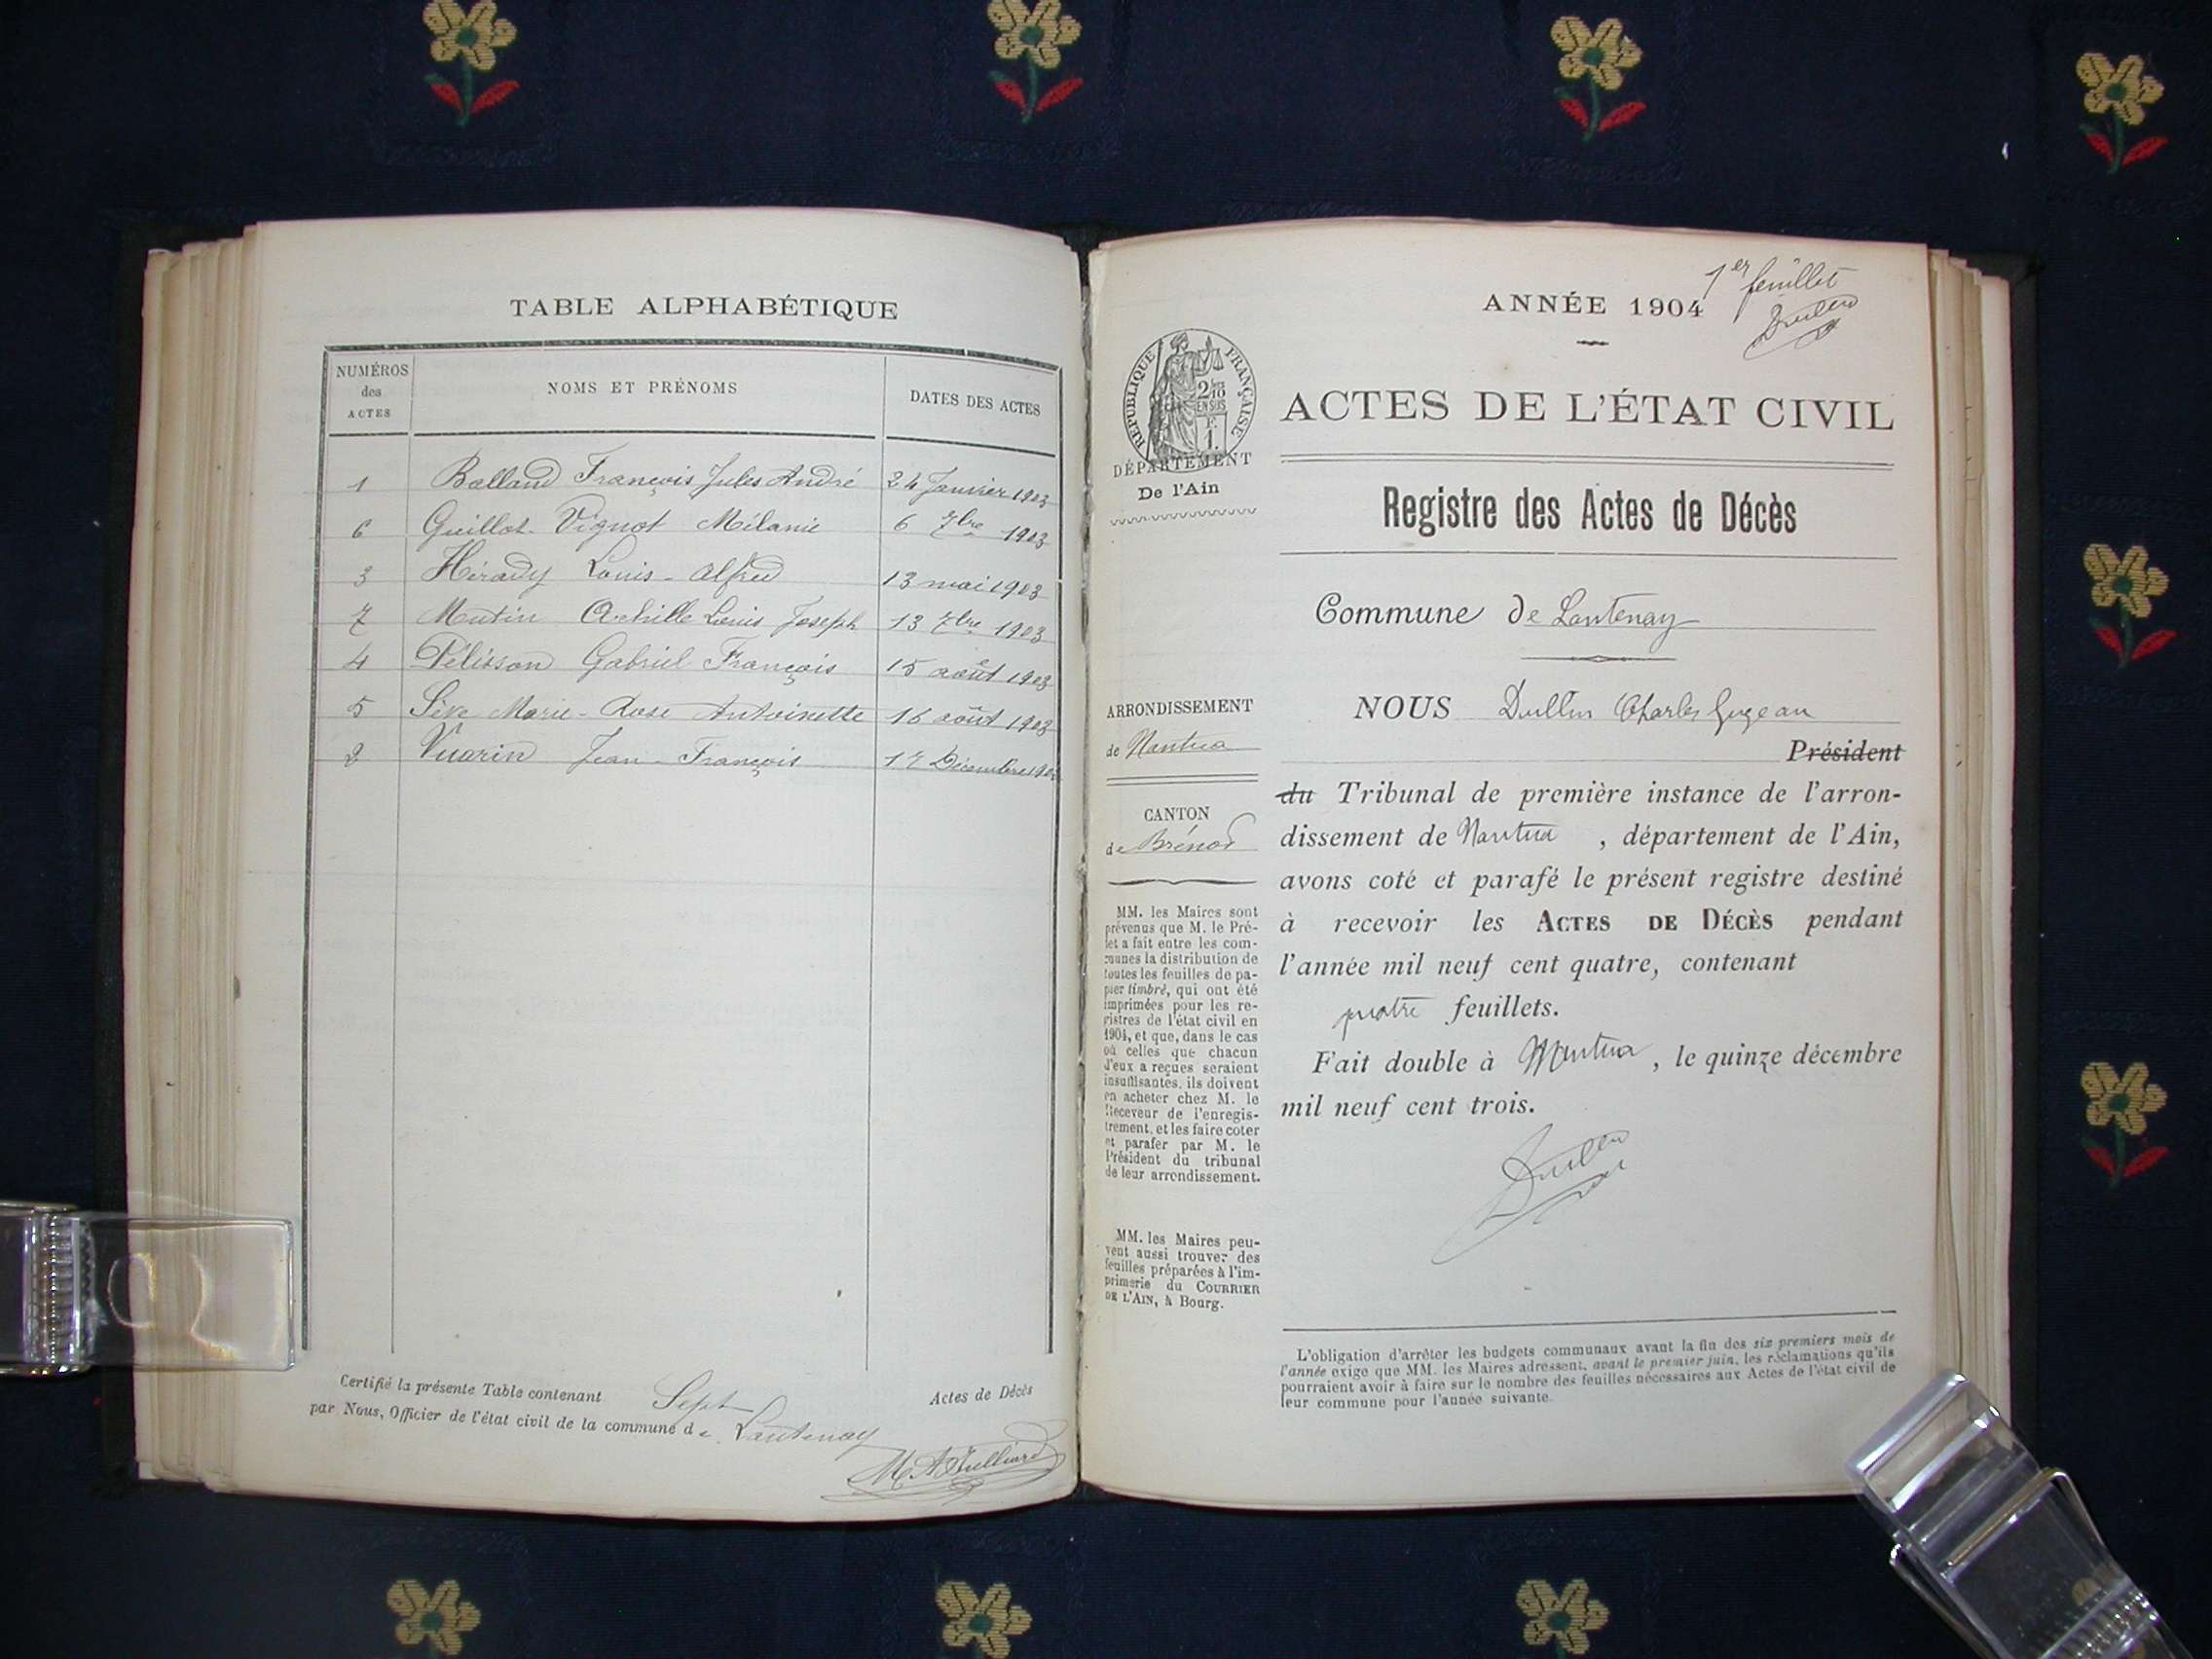 TABLE ALPHABÉTIQUE
NUMÉROS
des
ACTES
NOMS ET PRÉNOMS
DATES DES ACTES
1 Balland François Jules André 24 Janvier 1903
6 Guillot-Vignot Mélanie 6 7bre 1903
3 Hérady Louis-Alfred 13 mai 1903
7 Mutin Achille Louis Joseph 13 7bre 1903
4 Pélisson Gabriel François 15 août 1903
5 Sève Marie-Rose Antoinette 16 août 1903
8 Vuarin Jean-François 17 Décembre
Certifié la présente Table contenant Sept Actes de Décès
par Nous, Officier de l'état civil de la commune de Lantenay
1er feuillet
ANNÉE 1904
RÉPUBLIQUE FRANÇAISE
2/10
EN SUS
F.
1.
DÉPARTEMENT
De l'Ain
ACTES DE L'ÉTAT CIVIL
Registre des Actes de Décès
Commune de Lantenay
ARRONDISSEMENT
de Nantua
CANTON
de Brénod
MM. les Maires sont
prévenus que M. le Pré-
fet a fait entre les com-
munes la distribution de
toutes les feuilles de pa-
pier timbré, qui ont été
imprimées pour les re-
gistres de l'état civil en
1904, et que, dans le cas
où celles que chacun
d'eux a reçues seraient
insuffisantes, ils doivent
en acheter chez M. le
Receveur de l'enregis-
trement, et les faire coter
et parafer par M. le
Président du tribunal
de leur arrondissement.
MM. les Maires peu-
vent aussi trouver des
feuilles préparées à l'im-
primerie du COURRIER
DE L'AIN, à Bourg.
NOUS Dullin Charles
Président
du Tribunal de première instance de l'arron-
dissement de Nantua , département de l'Ain,
avons coté et parafé le présent registre destiné
à recevoir les ACTES DE DÉCÈS pendant
l'année mil neuf cent quatre, contenant
quatre feuillets.
Fait double à Nantua , le quinze décembre
mil neuf cent trois.
L'obligation d'arrêter les budgets communaux avant la fin des six premiers mois de
l'année exige que MM. les Maires adressent, avant le premier juin, les réclamations qu'ils
pourraient avoir à faire sur le nombre des feuilles nécessaires aux Actes de l'état civil de
leur commune pour l'année suivante.